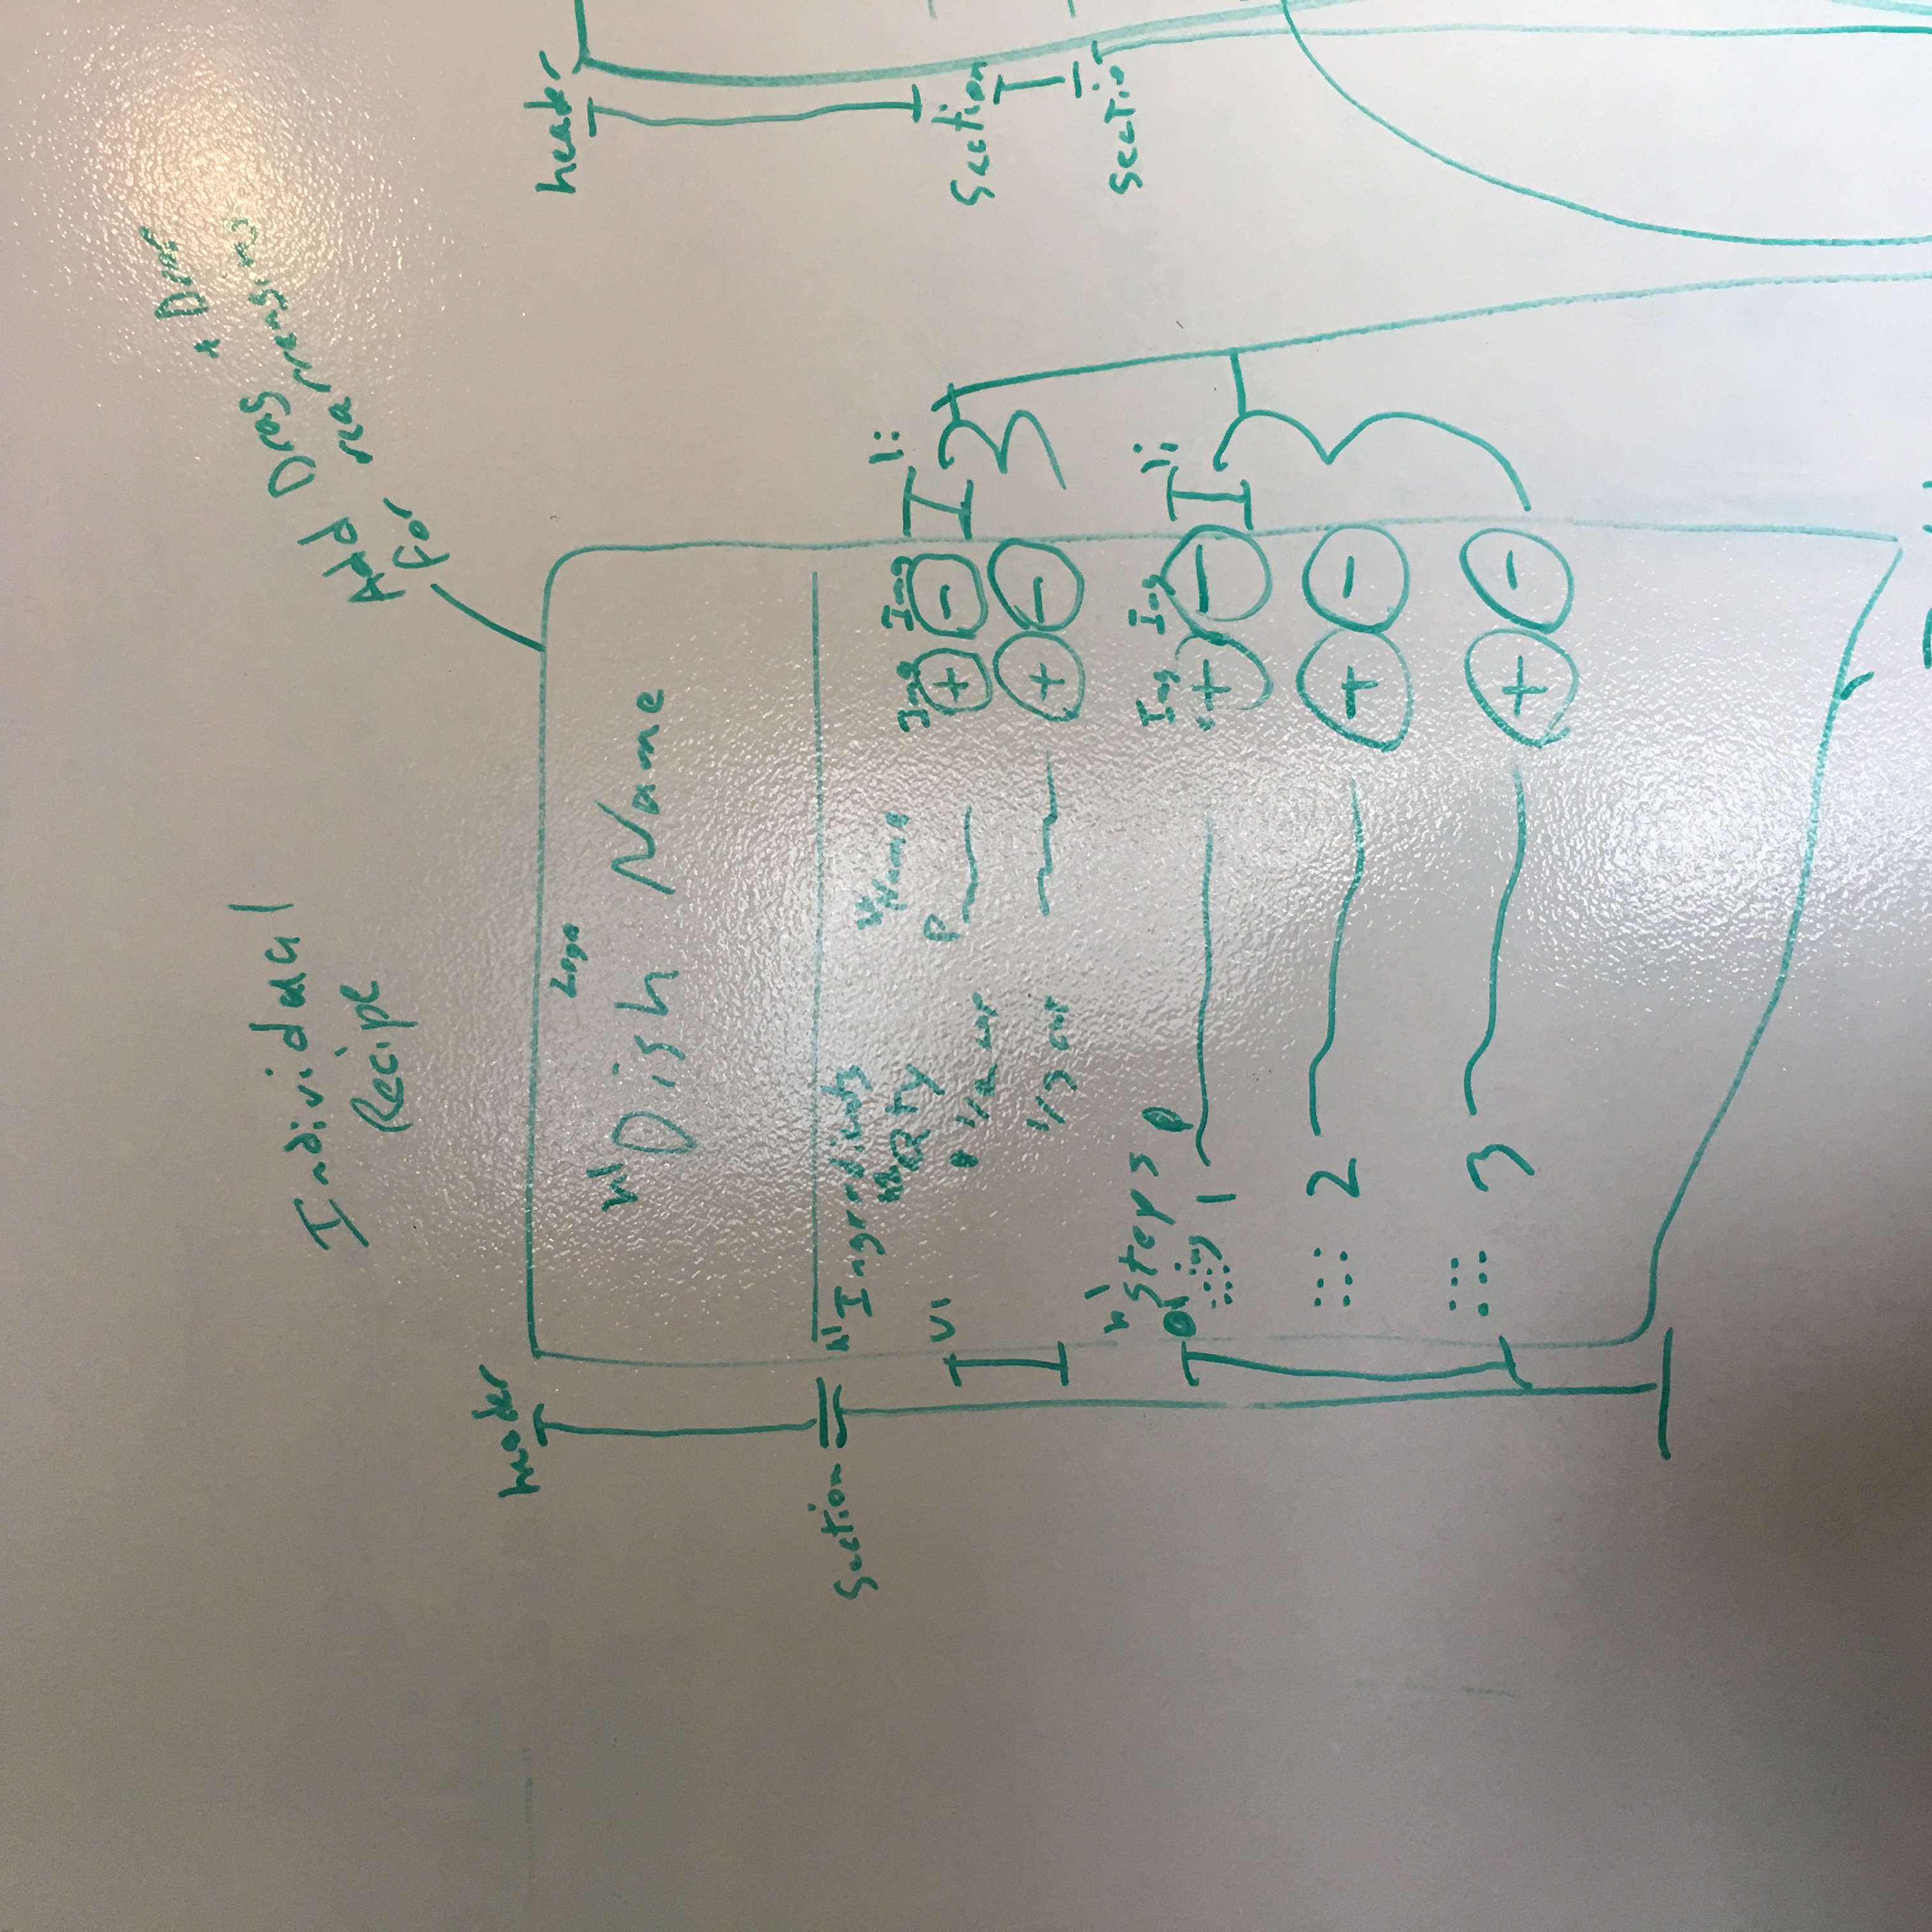 Individual
Recipe
Add Drag + Drop
for rearranging
header
Logo
h1 Dish Name
Section
h1 Ingredients
h2 Qty
Name
Img Img
li
ul
1/2 cup
P
+ -
1/3 cup
+ -
h1 Steps
ol
img
1
P
Img Img
li
+ -
2
+ -
3
+ -
header
Section
Section